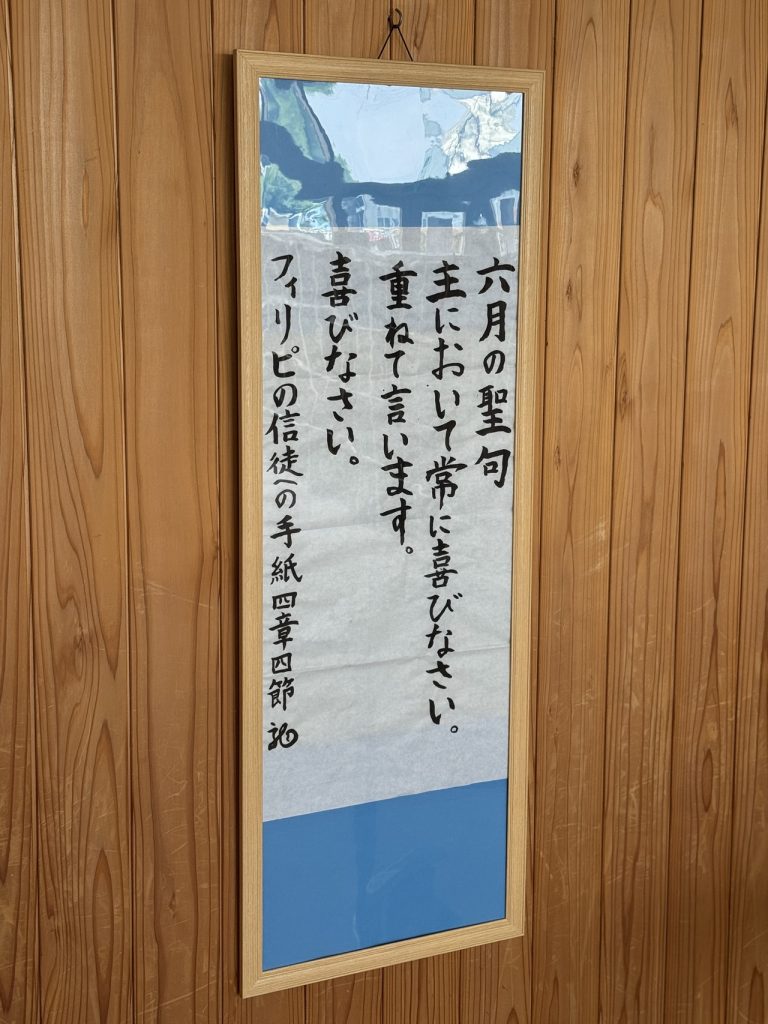 六月の聖句
主において常に喜びなさい。
重ねて言います。
喜びなさい。
フィリピの信徒への手紙四章四節